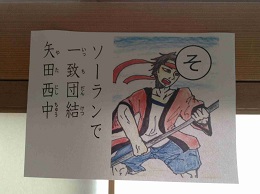 そ
ソーランで
一致団結
矢田西中